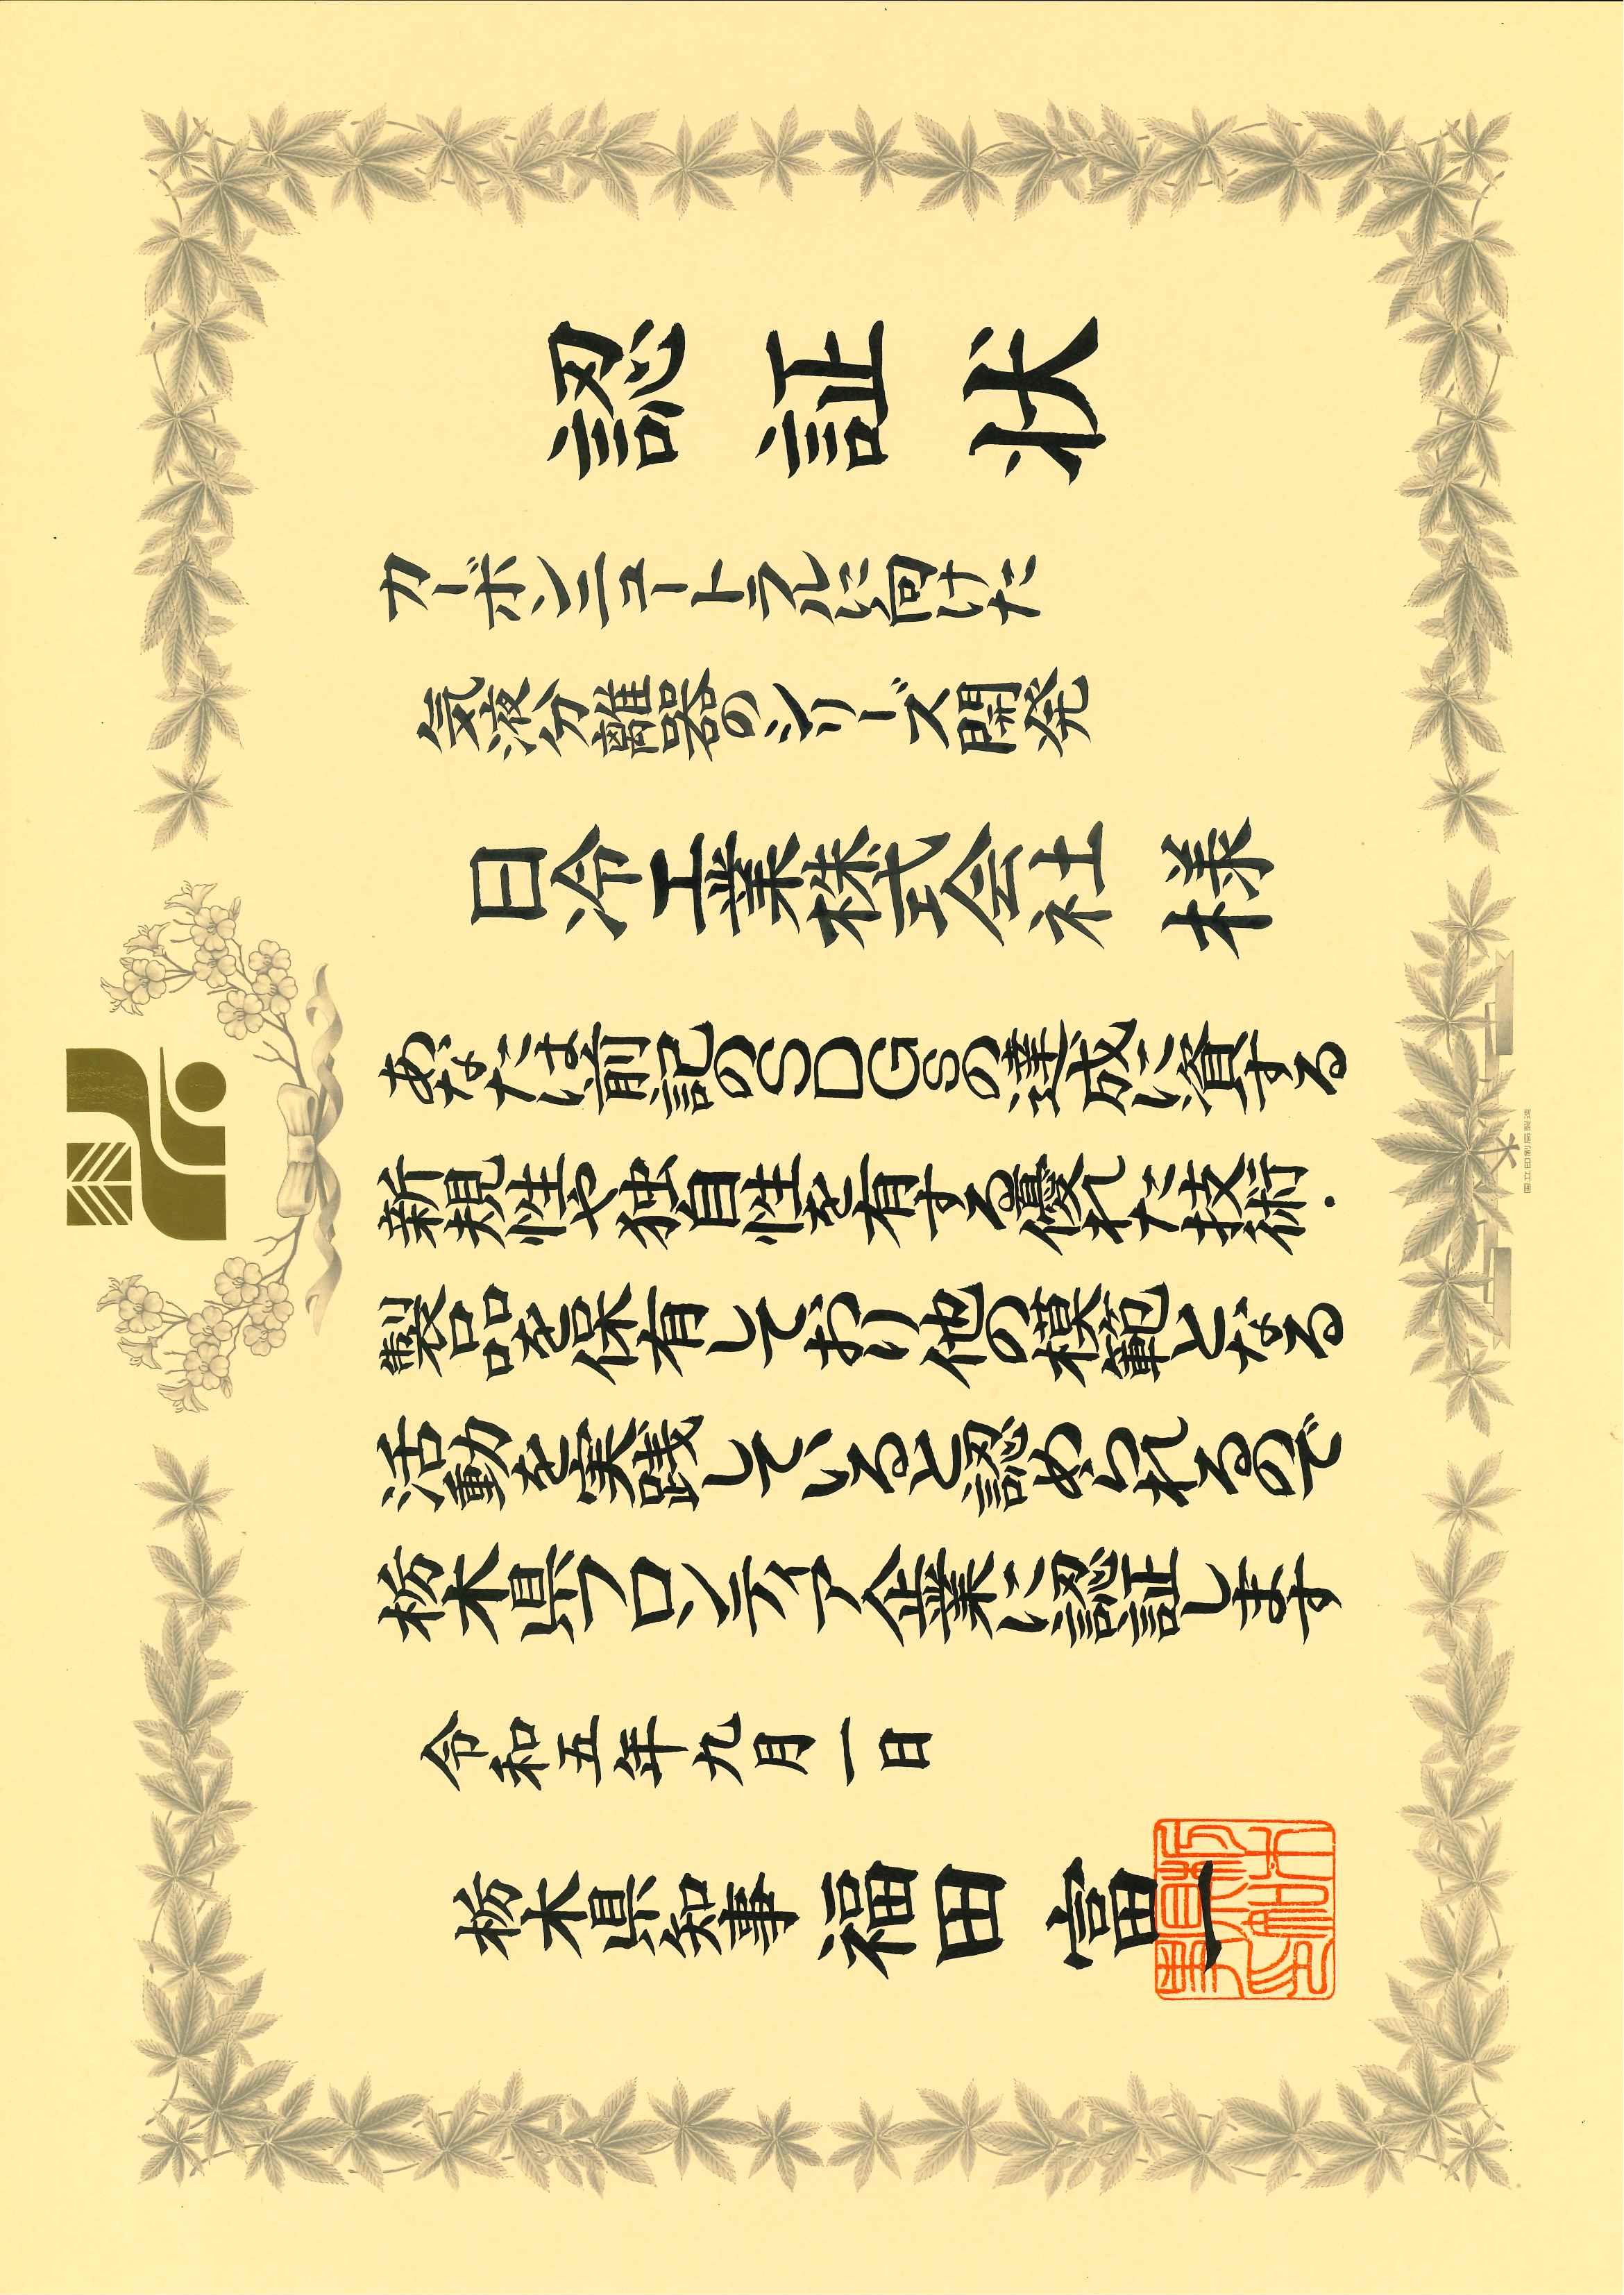 認証状
カーボンニュートラルに向けた
気液分離器のシリーズ開発
日冷工業株式会社 様
あなたは前記のSDGsの達成に資する
新規性や独自性を有する優れた技術・
製品を保有しており他の模範となる
活動を実践していると認められるので
栃木県フロンティア企業に認証します
令和五年九月一日
栃木県知事 福田富一
栃木県知事印
国立印刷局製造